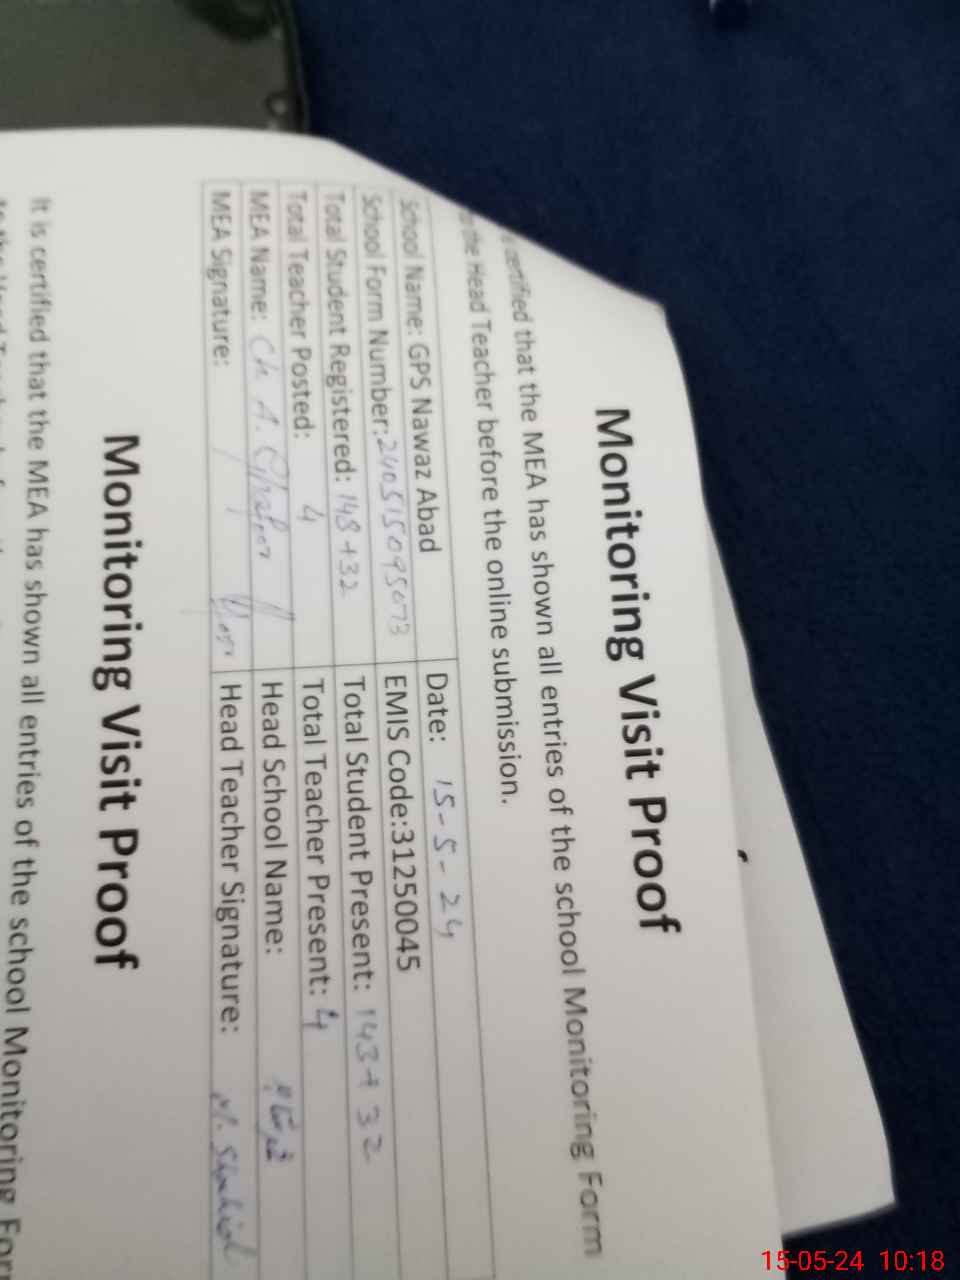 Monitoring Visit Proof
certified that the MEA has shown all entries of the school Monitoring Form
the Head Teacher before the online submission.
School Name: GPS Nawaz Abad Date: 15-5-24
School Form Number: 240515095073 EMIS Code:31250045
Total Student Registered: 148+32 Total Student Present: 143+32
Total Teacher Posted: 4 Total Teacher Present: 4
MEA Name: Ch. A. Head School Name:
MEA Signature: Head Teacher Signature: M. Shahid
Monitoring Visit Proof
It is certified that the MEA has shown all entries of the school Monitoring Form
15-05-24 10:18